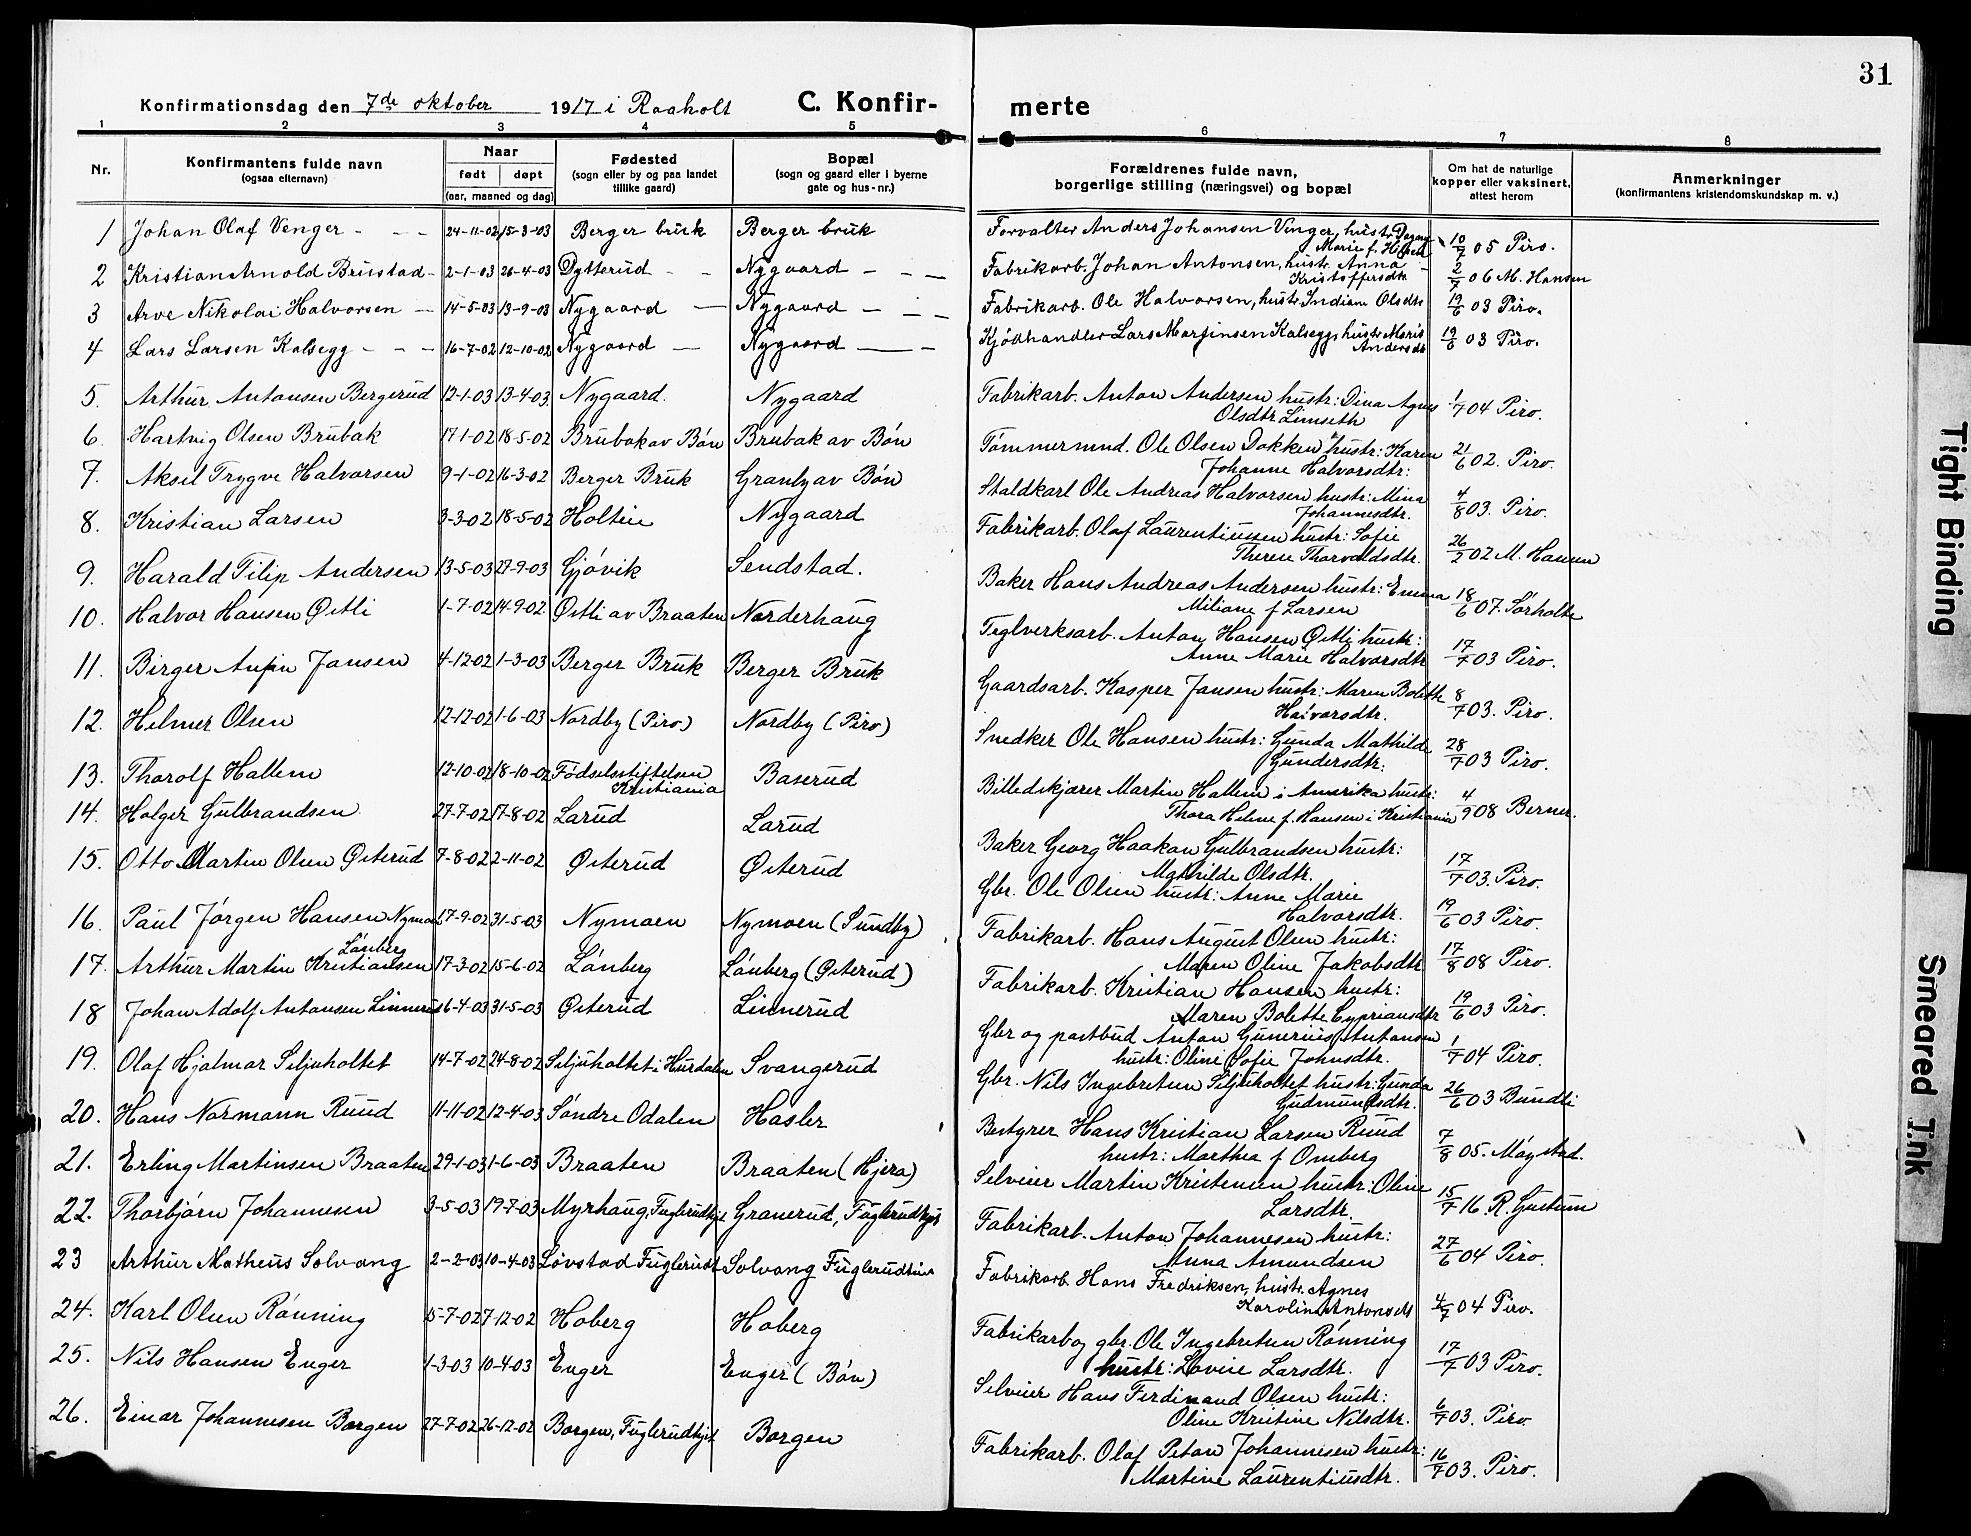 31
Konfirmationsdag den 7de oktober 1917 i Raaholt C. Konfir- merte
1 2 3 4 5 6 7 8
Nr. Konfirmantens fulde navn (ogsaa efternavn) Naar født døpt (aar, maaned og dag) Fødested (sogn eller by og paa landet tillike gaard) Bopæl (sogn og gaard eller i byerne gate og hus-nr.) Forældrenes fulde navn, borgerlige stilling (næringsvei) og bopæl Om hat de naturlige kopper eller vaksinert, attest herom Anmerkninger (konfirmantens kristendomskundskap m. v.)
1 Johan Olaf Venger 24-11-02 15-3-03 Berger bruk Berger bruk Forvalter Anders Johansen Vinger, hustr. Dagny
Marie f. 10/7 05 Piro.
2 Kristian Arnold Brustad 2-1-03 26-4-03 Dytterud Nygaard Fabrikarb. Johan Antonsen, hustr. Anna
Kristoffersdtr 2/7 06 M. Hansen
3 Arve Nikolai Halvorsen 14-5-03 13-9-03 Nygaard Nygaard Fabrikarb. Ole Halvorsen, hustr. Indiane Olsdtr 19/6 03 Piro.
4 Lars Larsen Kalsegg 16-7-02 12-10-02 Nygaard Nygaard Kjødhandler Lars Martinsen Kalsegg, hustr. Maris
Andersdtr 19/6 03 Piro.
5. Arthur Antonsen Bergerud 12-1-03 13-4-03 Nygaard. Nygaard Fabrikarb. Anton Andersen hustr: Dina Agnes
Olsdtr Limseth 1/7 04 Piro.
6. Hartvig Olsen Brubak 17-1-02 18-5-02 Brubak av Bøn Brubak av Bøn Tømmermend. Ole Olsen Dokken hustr: Karen
Johanne Halvorsdtr: 21/6 02. Piro.
7. Aksel Trygve Halvorsen 9-1-02 16-3-02 Berger Bruk Granly av Bøn Staldkarl Ole Andreas Halvorsen hustr: Mina
Johannesdtr. 4/8 03. Piro.
8. Kristian Larsen 3-3-02 18-5-02 Holtin Nygaard Fabrikarb. Olaf Laurentiussen hustr: Sofie
Therese Thorvaldsdtr. 26/2 02 M. Hansen
9. Harald Filip Andersen 13-5-03 27-9-03 Gjøvik Sendstad. Baker Hans Andreas Andersen hustr: Emma
Miliane f Larsen 18/6 07. Sørholte
10. Halvor Hansen Østli 1-7-02 14-9-02. Østli av Braaten Norderhaug Teglverksarb. Anton Hansen Østli hustr:
Anne Marie Halvorsdtr 17/7 03 Piro.
11. Birger Anfin Jansen 4-12-02 1-3-03 Berger Bruk Berger Bruk Gaardsarb. Kasper Jansen hustr: Maren Bolette
Halvorsdtr. 8/7 03. Piro.
12. Helmer Olsen 12-12-02 1-6-03 Nordby (Piro) Nordby (Piro) Snedker Ole Hansen hustr: Gunda Mathilde
Gundersdtr: 28/7 03 Piro.
13. Thorolf Hallem 12-10-02 18-10-02 Fødselsstiftelsen
Kristiania Baserud Billedskjærer Martin Hallem i Amerika hustr:
Thora Helene f. Hansen i Kristiania 4/9 08 Berner.
14. Holger Gulbrandsen 27-7-02 17-8-02 Larud Larud Baker Georg Haakon Gulbrandsen hustr:
Mathilde Olsdtr. 17/7 03. Piro.
15. Otto Martin Olsen Østerud 7-8-02 2-11-02 Østerud Østerud Gbr. Ole Olsen hustr: Anne Marie
Halvorsdtr. 19/6 03 Piro.
16. Paul Jørgen Hansen Nymoen 17-9-02 31-5-03 Nymoen Nymoen (Sundby) Fabrikarb. Hans August Olsen hustr:
Maren Oline Jakobsdtr 17/8 08 Piro.
17. Arthur Martin Kristiansen Lønberg 17-3-02 15-6-02 Lønberg Lønberg (Østerud) Fabrikarb. Kristian Hansen hustr:
Maren Bolette Cypriansdtr 19/6 03 Piro.
18 Johan Adolf Antonsen Linnerud 16-4-03 31-5-03 Østerud Linnerud Gbr og postbud Anton Gunerius Antonsen
hustr: Oline Sofie Johnsdtr. 1/7 04 Piro.
19. Olaf Hjalmar Siljuholtet 14-7-02 24-8-02 Siljuholtet i Hurdalen Svangerud Gbr. Nils Ingebretsen Siljuholtet hustr: Gunda
Gudmundsdtr. 26/6 03 Bundli
20. Hans Normann Ruud 11-11-02 12-4-03 Søndre Odalen Hasler Bestyrer Hans Kristian Larsen Ruud
hustr: Marthea f Omberg 7/8 05. Møystad.
21. Erling Martinsen Braaten 29-1-03 1-6-03 Braaten Braaten (Hjera) Selveier Martin Kristensen hustr: Oline
Larsdtr. 15/7 16. R. Gustum
22. Thorbjørn Johannesen 3-5-03 19-7-03 Myrhaug, Fuglerudhjst Granerud, Fuglerudhjst Fabrikarb. Anton Johannesen hustr:
Anna Amundsen 27/6 04 Piro.
23 Arthur Matheus Solvang 2-2-03 10-4-03 Løvstad Fuglerudt Solvang Fabrikarb. Hans Fredriksen, hustr. Agnes
Karoline Antonsdtr 4/7 04 Piro.
24. Karl Olsen Rønning 15-7-02 7-12-02 Hoberg Hoberg Fabrikarb og gbr. Ole Ingebretsen Rønning
hustr: Lovise Larsdtr. 17/7 03 Piro.
25. Nils Hansen Enger 1-3-03 10-4-03 Enger Enger (Bøn) Selveier Hans Ferdinand Olsen hustr:
Oline Kristine Nilsdtr. 6/7 03. Piro
26. Einar Johannesen Borgen 27-7-02 26-12-02 Borgen, Fuglerudhjst Borgen Fabrikarb. Olaf Petan Johannesen hustr:
Martine Laurentiusdtr. 16/7 03. Piro.
Tight Binding
Smeared Ink